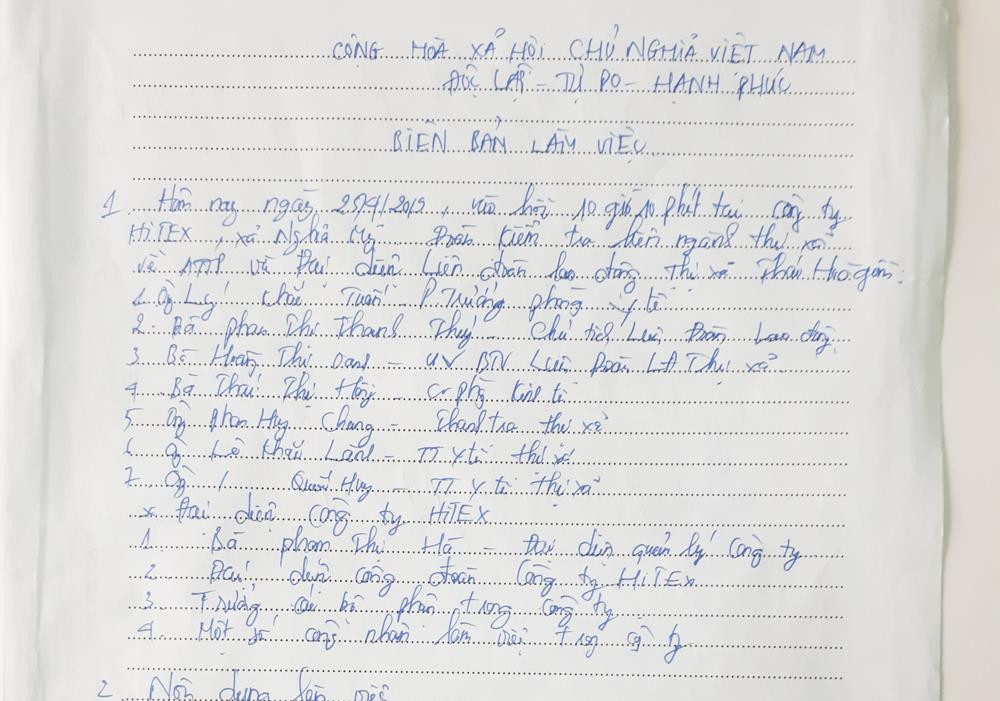 CỘNG HOÀ XÃ HỘI CHỦ NGHĨA VIỆT NAM
ĐỘC LẬP - TỰ DO - HẠNH PHÚC
BIÊN BẢN LÀM VIỆC
1. Hôm nay ngày 25/9/2019, vào hồi 10 giờ 10 phút tại công ty
HITEX, xã Nghĩa Mỹ. Đoàn kiểm tra liên ngành thị xã
về ATTP và Đại diện Liên đoàn lao động Thị xã Thái Hoà gồm:
1. Ông Khắc Tuấn - P. Trưởng phòng y tế
2. Bà Phan Thị Thanh Thuý - Chủ tịch Liên Đoàn Lao động
3. Bà Hoàng Thị - UV BTV Liên Đoàn LĐ Thị xã
4. Bà Thái Thị - phòng Kinh tế
5. Ông Phan Huy Chung - Thanh tra thị xã
6. Ông Lê Khắc Lành - TT Y tế thị xã
7. Ông Huy - TT Y tế thị xã
* Đại diện công ty HITEX
1. Bà Phạm Thị Hà - Đại diện quản lý công ty
2. Đại diện công đoàn công ty HITEX
3. Trưởng các bộ phận trong công ty
4. Một số công nhân làm việc trong công ty
2. Nội dung làm việc